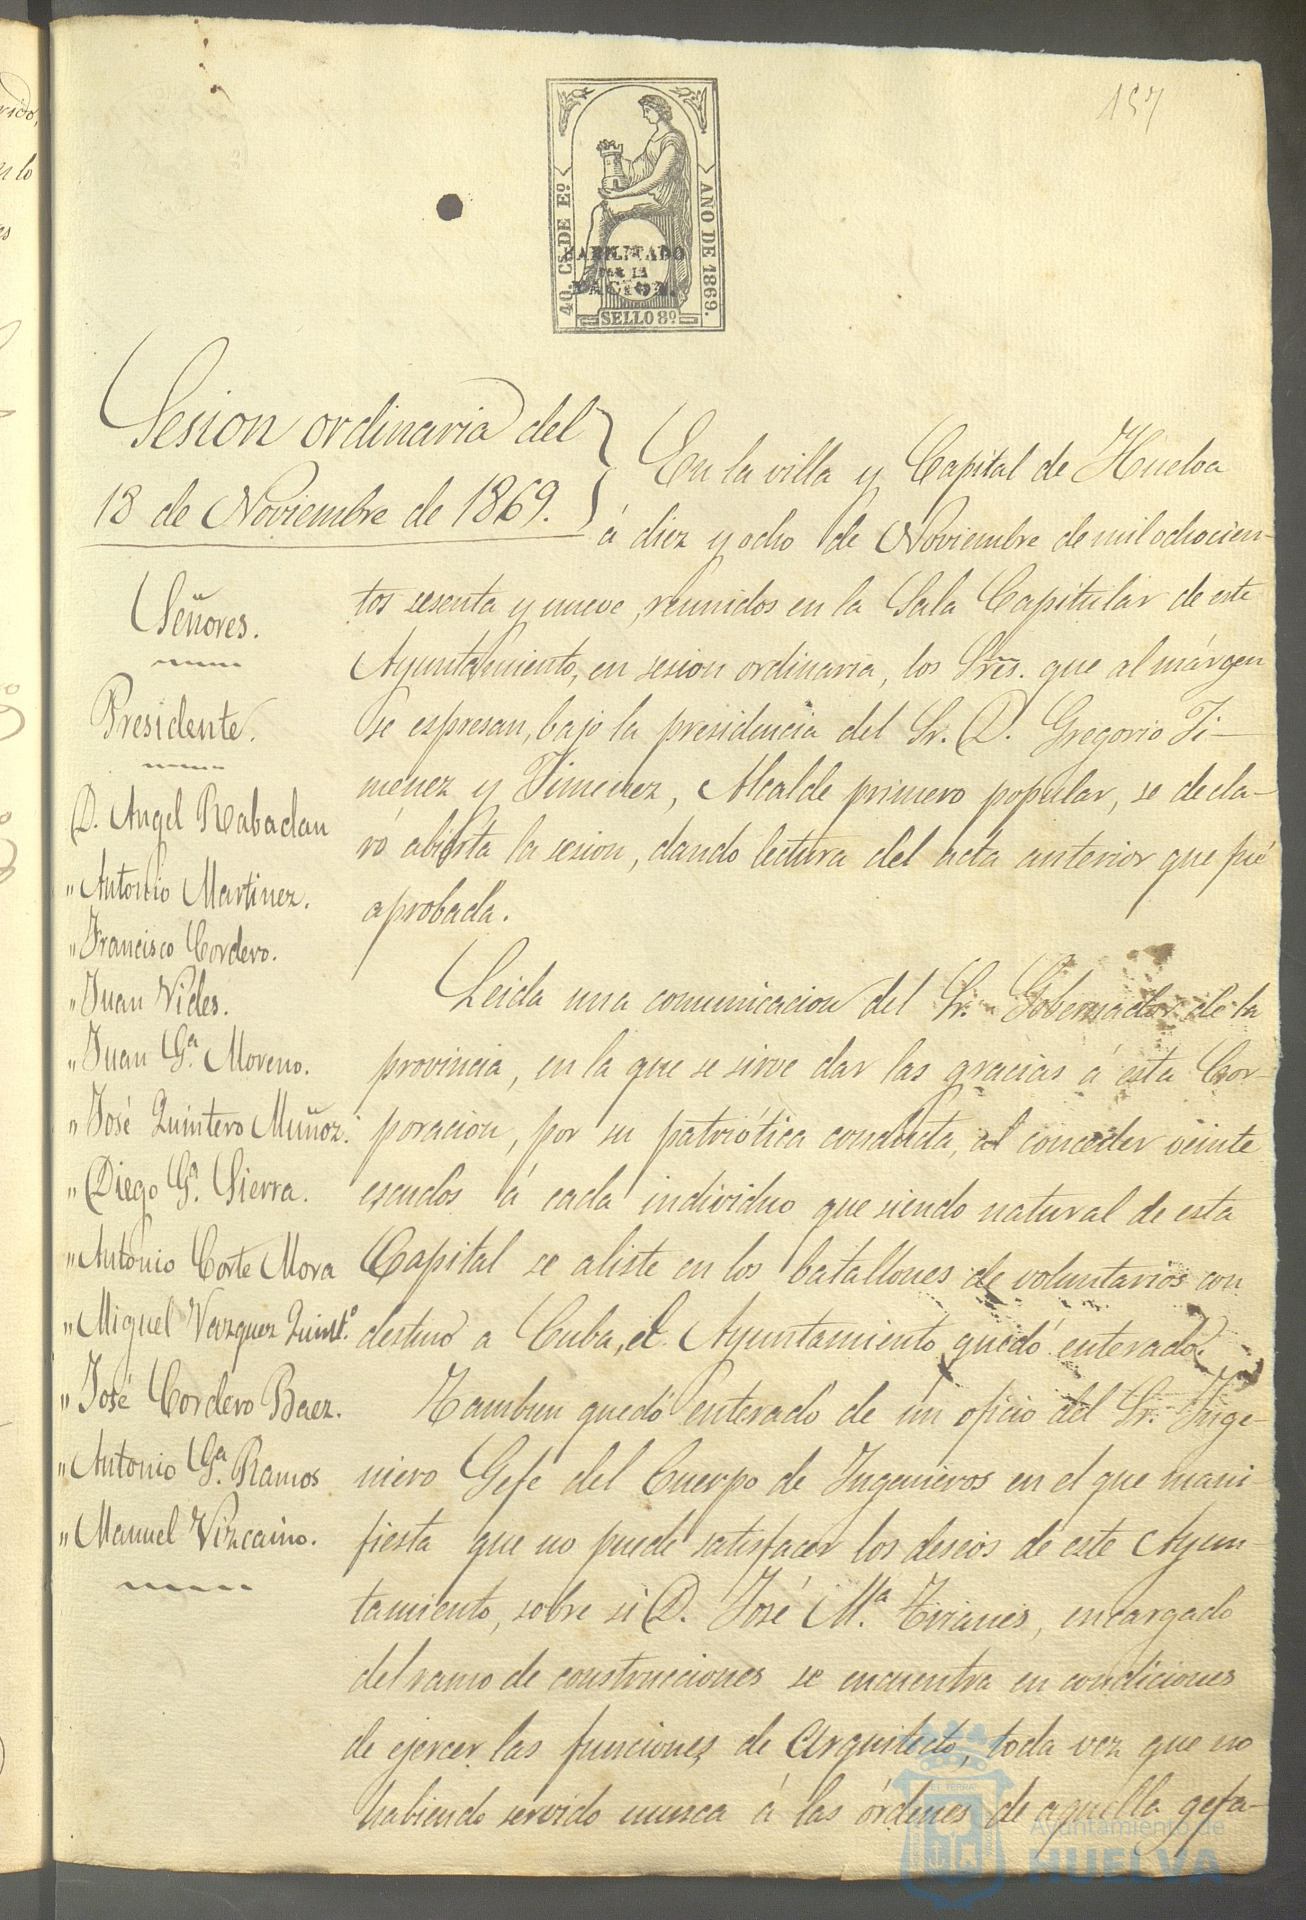 157
40 Cs. DE Eº
AÑO DE 1869.
HABILITADO
POR LA
NACION.
SELLO 8º
Sesion ordinaria del
18 de Noviembre de 1869.
Señores.
Presidente.
D. Angel Rabadan
" Antonio Martinez.
" Francisco Cordero.
" Juan Vides.
" Juan Gª. Moreno.
" José Quintero Muñoz.
" Diego Gª. Sierra.
" Antonio Corte Mora
" Miguel Vazquez Quintº.
" José Cordero Baez.
" Antonio Gª. Ramos
" Manuel Vizcaino.
En la villa y Capital de Huelva
á diez y ocho de Noviembre de mil ochocien-
tos sesenta y nueve, reunidos en la Sala Capitular de este
Ayuntamiento, en sesion ordinaria, los Sres. que al márgen
se espresan, bajo la presidencia del Sr. D. Gregorio Ji-
menez y Jimenez, Alcalde primero popular, se decla-
ró abierta la sesion, dando lectura del acta anterior que fué
aprobada.
Leida una comunicacion del Sr. Gobernador de la
provincia, en la que se sirve dar las gracias á esta Cor-
poracion, por su patriótica conducta, al conceder veinte
escudos á cada individuo que siendo natural de esta
Capital se aliste en los batallones de voluntarios con
destino a Cuba, el Ayuntamiento quedó enterado.
Tambien quedó enterado de un oficio del Sr. Inge-
niero Gefe del Cuerpo de Ingenieros en el que mani-
fiesta que no puede satisfacer los deseos de este Ayun-
tamiento, sobre si D. José Mª. encargado
del ramo de construcciones se encuentra en condiciones
de ejercer las funciones de Arquitecto, toda vez que no
habiendo servido nunca á las órdenes de aquella gefa-
Ayuntamiento de
HUELVA